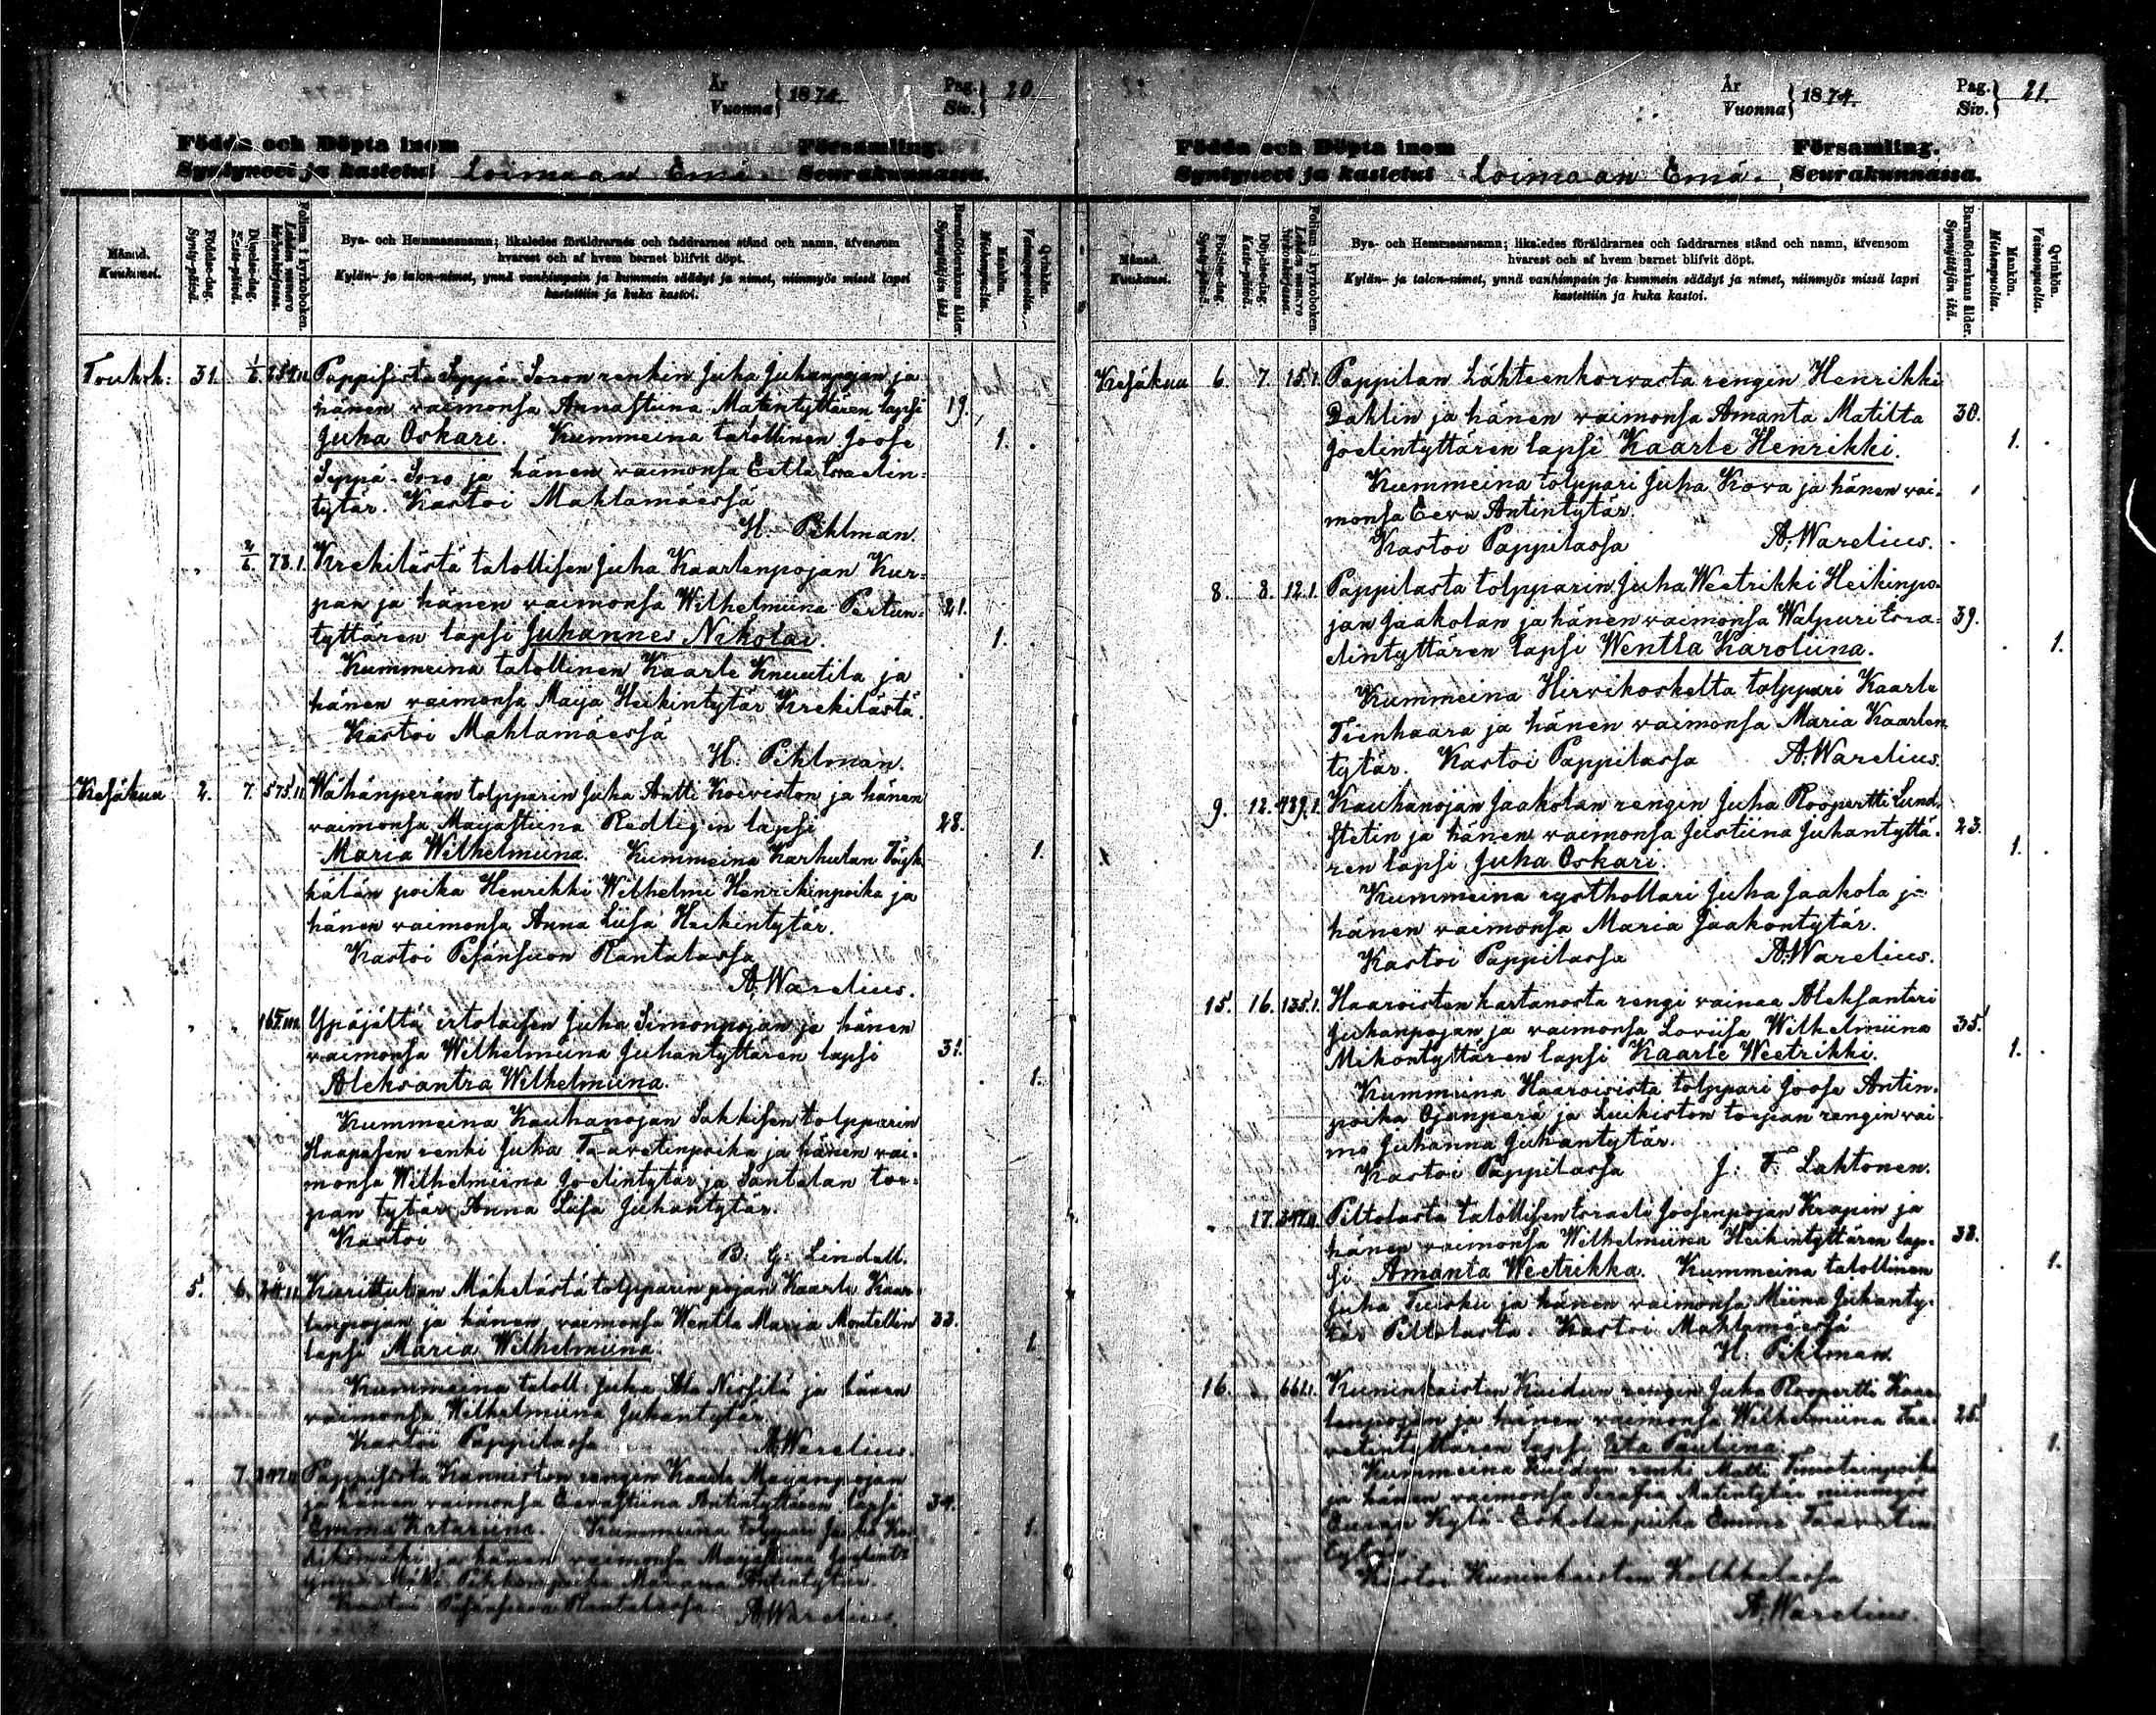 År
Vuonna } 1874.
Pag.
Siv. } 20
Födda och Döpta inom Församling.
Syntyneet ja kastetut Loimaan Emä- Seurakunnassa.
Månad.
Kuukausi.
Födelse-dag.
Synty-päivä.
Döpelse-dag.
Kaste-päivä.
Folium i kyrkoboken.
Lehden numero kirkonkirjassa.
Bya- och Hemmansnamn; likaledes föräldrarnes och faddrarnes stånd och namn, äfvensom
hvarest och af hvem barnet blifvit döpt.
Kylän- ja talon-nimet, ynnä vanhimpain ja kummein säädyt ja nimet, niinmyös missä lapsi
kastettiin ja kuka kastoi.
Barnaföderskans ålder.
Synnyttäjän ikä.
Mankön.
Miehenpuolia.
Qvinkön.
Vaimonpuolia.
Toukok: 31. 1/6. Pappisista Seppä-Soron renkin Juha Juhanpojan ja
hänen vaimonsa Annastiina Matintyttären lapsi 19.
Juha Oskari. Kummeina talollinen Joose 1.
Seppä-Soro ja hänen vaimonsa Eetla Israelin-
tytär. Kastoi Mahlamäessä
H. Pihlman.
" 2/6. 78.1. Krekilästä talollisen Juha Kaarlenpojan Kur-
pan ja hänen vaimonsa Wilhelmiina Pertun- 21.
tyttären lapsi Juhannes Nikolai. 1.
Kummeina talollinen Kaarle Knuutila ja
hänen vaimonsa Maija Heikintytär Krekilästä.
Kastoi Mahlamäessä
H. Pihlman.
Kesäkuu 2. 7. 575.II. Wähänperän tolpparin Juha Antti Koiviston ja hänen
vaimonsa Majastiina Redligin lapsi 28.
Maria Wilhelmiina. Kummeina Karhulan 1.
poika Henrikki Wilhelmi Henrikinpoika ja
hänen vaimonsa Anna Liisa Heikintytär.
Kastoi Pesänsuon Rantalassa
A. Warelius.
" " 165.III. Ypäjältä irtolaisen Juha Simonpojan ja hänen
vaimonsa Wilhelmiina Juhantyttären lapsi 31.
Aleksantra Wilhelmiina. 1.
Kummeina Kauhanojan Sakkisen tolpparin
Haapasen renki Juha Taavetinpoika ja hänen vai-
monsa Wilhelmiina Joelintytär ja Santalan tor-
pan tytär Anna Liisa Juhantytär.
Kastoi
B. G. Lindell.
5. 6. Karittulan Mäkelästä tolpparin pojan Kaarle Kaar-
lenpojan ja hänen vaimonsa Wentla Maria Montellin 33.
lapsi Maria Wilhelmiina. 1.
Kummeina taloll. Juha Ala Nissilä ja hänen
vaimonsa Wilhelmiina Juhantytär.
Kastoi Pappilassa A. Warelius.
" 7. Pappisista Kanniston rengin Kaarle Majanpojan
ja hänen vaimonsa Eevastiina Antintyttären lapsi 34.
Emma Katariina. Kummeina tolppari Juha 1.
ja hänen vaimonsa Majastiina
Mariana Antintytär.
Kastoi Pesänsuon Rantalassa A. Warelius.
År
Vuonna } 1874.
Pag.
Siv. } 21.
Födda och Döpta inom Församling.
Syntyneet ja kastetut Loimaan Emä-, Seurakunnassa.
Månad.
Kuukausi.
Födelse-dag.
Synty-päivä.
Döpelse-dag.
Kaste-päivä.
Folium i kyrkoboken.
Lehden numero kirkonkirjassa.
Bya- och Hemmansnamn; likaledes föräldrarnes och faddrarnes stånd och namn, äfvensom
hvarest och af hvem barnet blifvit döpt.
Kylän- ja talon-nimet, ynnä vanhimpain ja kummein säädyt ja nimet, niinmyös missä lapsi
kastettiin ja kuka kastoi.
Barnaföderskans ålder.
Synnyttäjän ikä.
Mankön.
Miehenpuolia.
Qvinkön.
Vaimonpuolia.
Kesäkuu 6. 7. 15.1. Pappilan Lähteenkorvasta rengin Henrikki
Dahlin ja hänen vaimonsa Amanta Matilta 30.
Joelintyttären lapsi Kaarle Henrikki. 1.
Kummeina tolppari Juha Kova ja hänen vai-
monsa Eeva Antintytär.
Kastoi Pappilassa A. Warelius.
8. 8. 12.1. Pappilasta tolpparin Juha Weetrikki Heikinpo-
jan Jaakolan ja hänen vaimonsa Walpuri Isra- 39.
elintyttären lapsi Wentla Karoliina. 1.
Kummeina Hirvikoskelta tolppari Kaarle
Tienhaara ja hänen vaimonsa Maria Kaarlen-
tytär. Kastoi Pappilassa A. Warelius.
9. 12. 439.1. Kauhanojan Jaakolan rengin Juha Roopertti Lund-
stetin ja hänen vaimonsa Justiina Juhantyttä- 23.
ren lapsi Juha Oskari. 1.
Kummeina rysthollari Juha Jaakola ja
hänen vaimonsa Maria Jaakontytär.
Kastoi Pappilassa A. Warelius.
15. 16. 135.1. Haaroisten kartanosta rengi vainaa Aleksanteri
Juhanpojan ja vaimonsa Loviisa Wilhelmiina 35.
Mikontyttären lapsi Kaarle Weetrikki. 1.
Kummeina Haaroisista tolppari Joose Antin-
poika Ojanperä ja Leikiston torpan rengin vai-
mo Juhanna Juhantytär.
Kastoi Pappilassa J. F. Lahtonen.
" 17. Piltolasta talollisen Israeli Joosenpojan Krapin ja
hänen vaimonsa Wilhelmiina Heikintyttären lap- 38.
si Amanta Weetrikka. Kummeina talollinen 1.
Juha Tuisku ja hänen vaimonsa Miina Juhanty-
tär Piltolasta. Kastoi Mahlamäessä
H. Pihlman.
16. " 661. Kuninkaisten Kuidun rengin Juha Roopertti Kaar-
lenpojan ja hänen vaimonsa Wilhelmiina Taa- 25.
vetintyttären lapsi Iita Pauliina. 1.
Kummeina Kuidun renki Matti Timoteinpoika
ja hänen vaimonsa Serafia Matintytär niinmyös
Euran Kylä-Eskolan piika Emma Taavetin-
tytär.
Kastoi Kuninkaisten Kolkkalassa
A. Warelius.